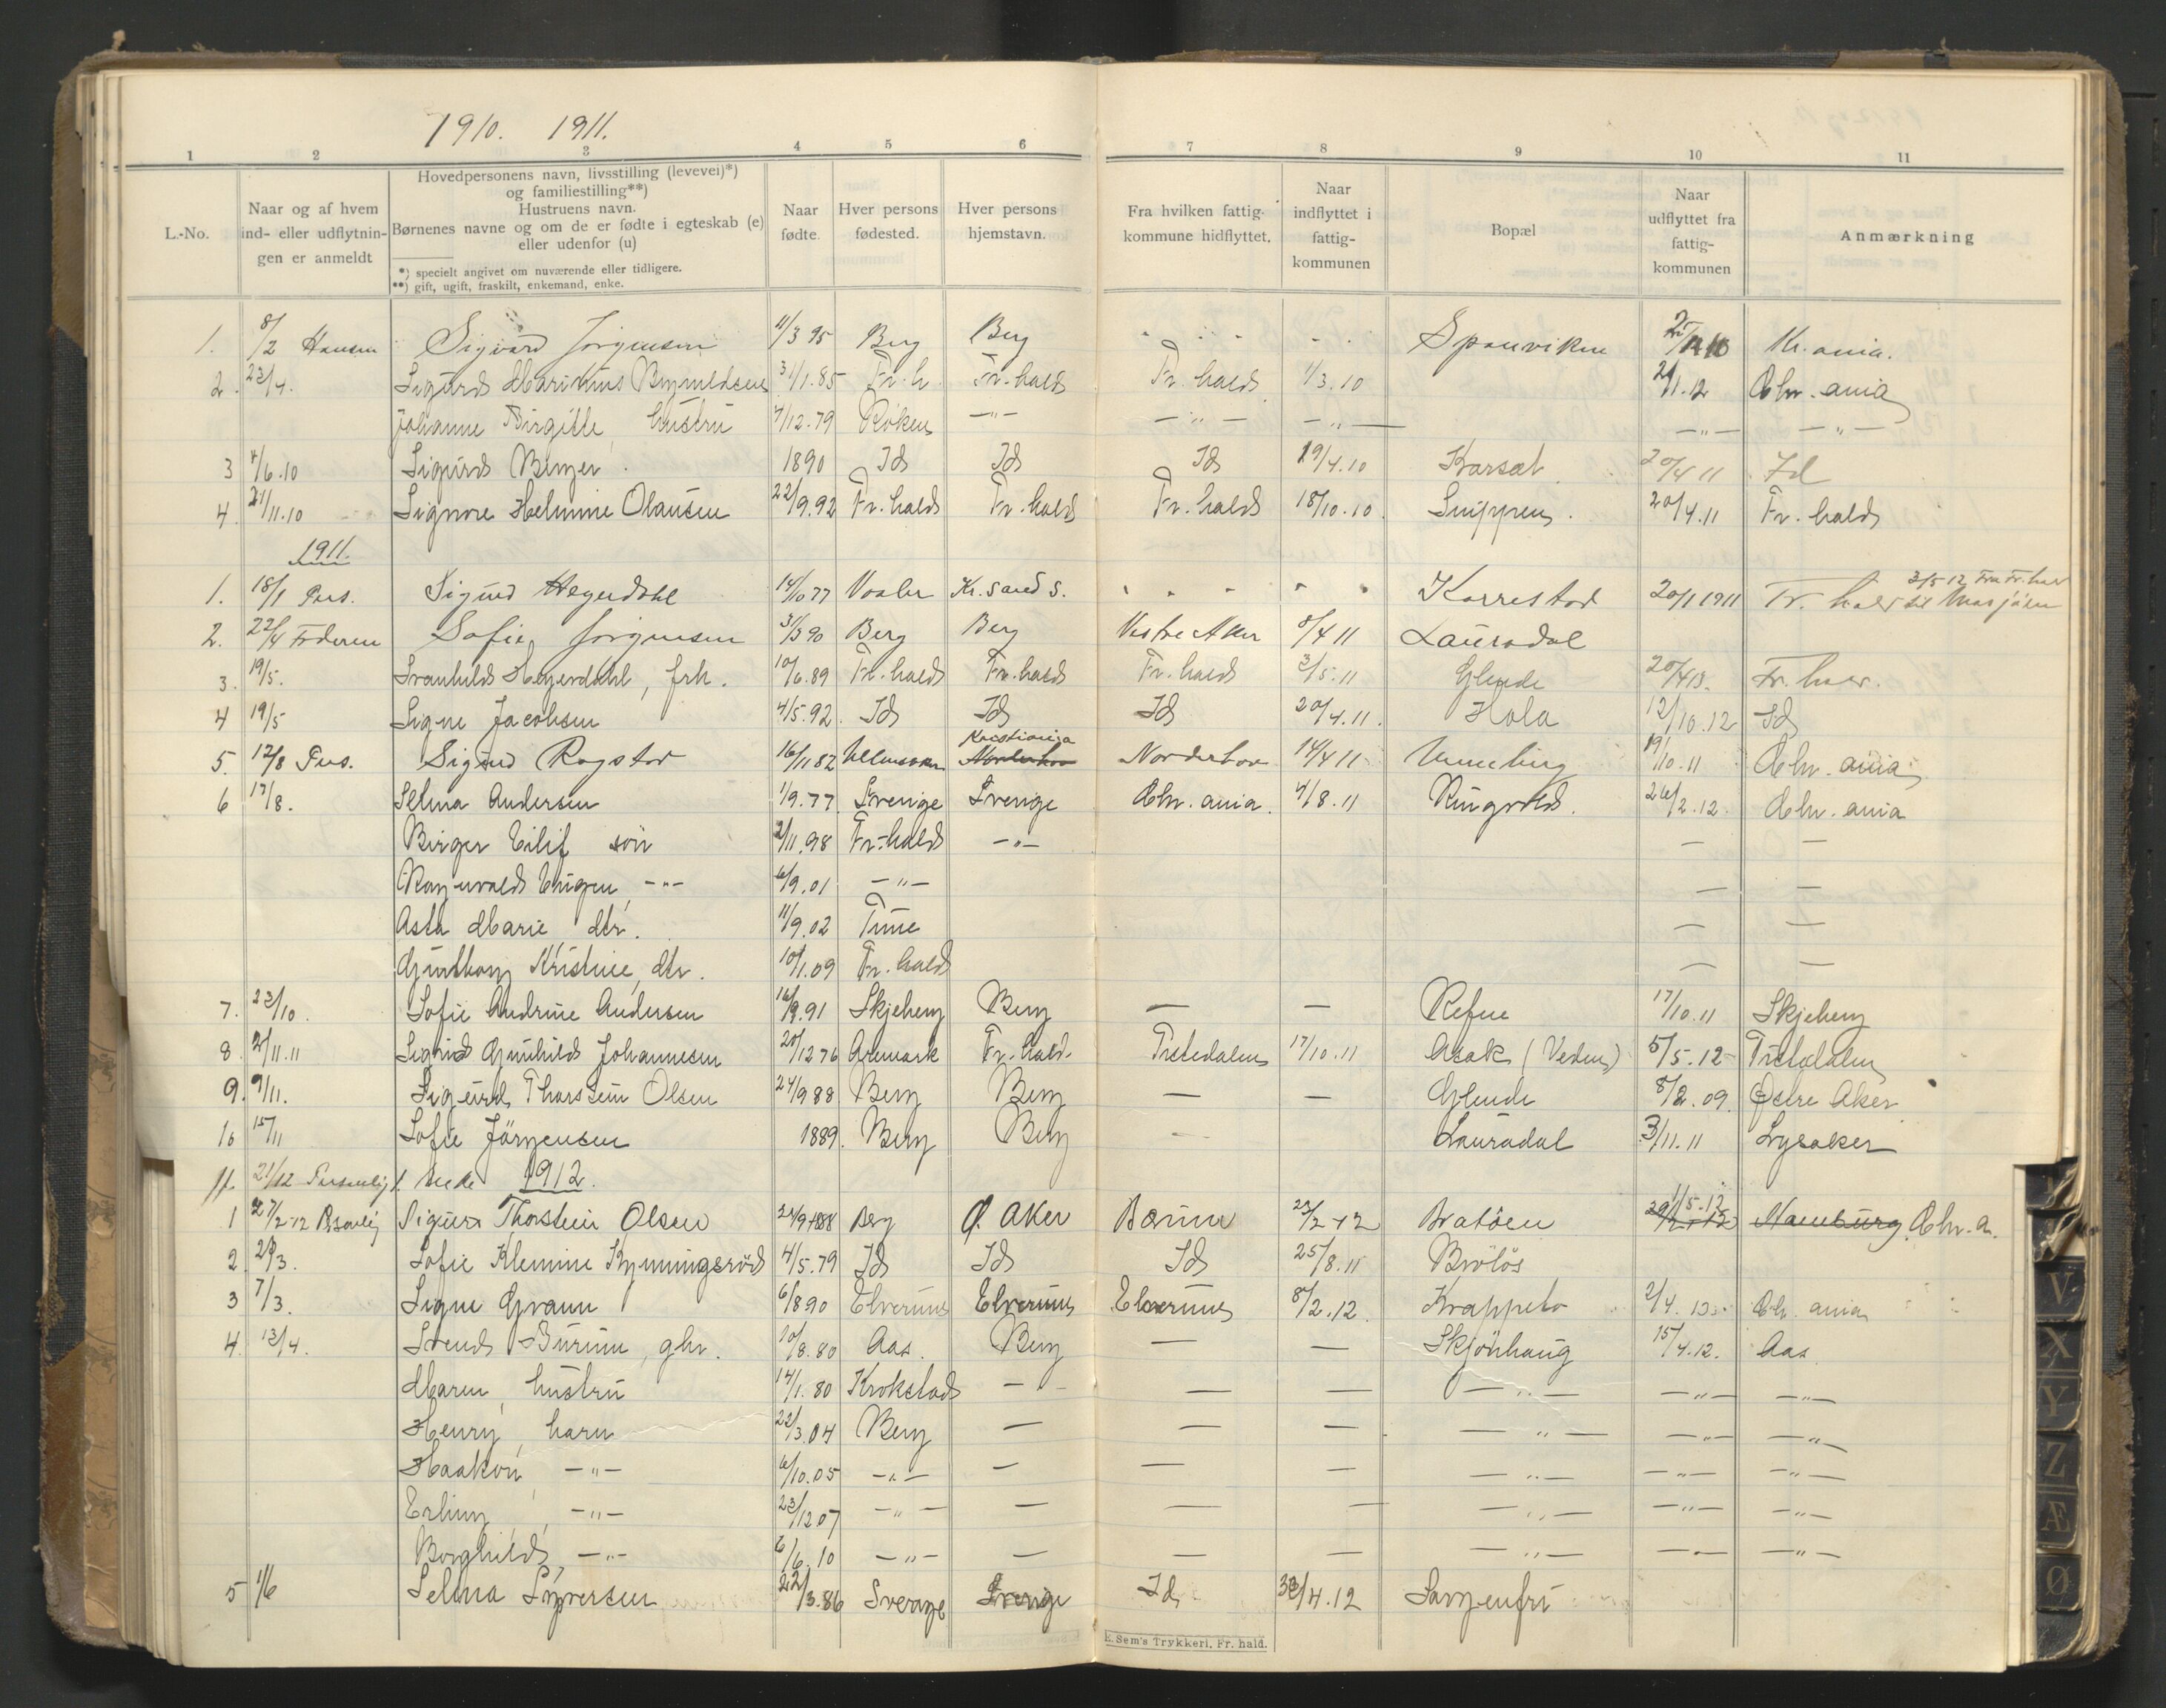 1910. 1911.
1 2 3 4 5 6 7 8 9 10 11
L.-No.
Naar og af hvem ind- eller udflytnin- gen er anmeldt
Hovedpersonens navn, livsstilling (levevei)*)
og familiestilling**)
Hustruens navn.
Børnenes navne og om de er fødte i egteskab (e)
eller udenfor (u)
*) specielt angivet om nuværende eller tidligere.
**) gift, ugift, fraskilt, enkemand, enke.
Naar fødte.
Hver persons fødested.
Hver persons hjemstavn.
Fra hvilken fattig- kommune hidflyttet.
Naar indflyttet i fattig- kommunen
Bopæl
Naar udflyttet fra fattig- kommunen
Anmærkning
1. 8/2 Hansen Sigvard Jørgensen 11/3 95 Berg Berg Sponviken Kr.ania.
2. 23/4. Sigurd Marinius 31/1.85 Fr.h. Fr.hald Fr.hald 1/3.10 21/1.12 Chr.ania
Johanne Birgitte, hustru 7/12.79 Röken —"— —"— —"— —"— —"—
3 4/6.10 Sigurd Berger. 1890 Id Id Id 19/4.10 Karset 20/4 11 Id
4. 21/11.10 Signore Helmine Olausen 22/9.92 Fr.hald Fr.hald Fr.hald 18/10.10. 20/4.11 Fr.hald
1911.
1. 18/1 Pers. Sigurd Heyerdahl 14/10 77 Vaaler Kr.sand S. " " " " Korrestad 20/1 1911 Fr.hald 3/5 12 fra Fr.hald til Mosjöen
2. 22/4 Sofie Jørgensen 31/3 90 Berg Berg Vestre Aker 8/4 11 Lauradal
3. 19/5. Svanhild Heyerdahl, frk. 10/6.89 Fr.hald Fr.hald Fr.hald 3/5.11 Glende 20/4 13. Fr.hald.
4 19/5 Signe Jacobsen 4/5.92. Id Id Id 20/4.11. Hola 12/10.12 Id
5. 12/8 Pers. Sigurd Rogstad 16/11 82 Ullensaker Norderhov Kristiania Norderhov 14/4 11 Unneberg 19/10.11 Chr.ania
6 17/8. Selma Andersen 1/9.77. Sverige Sverige Chr.ania. 4/8.11 Ringvold. 26/2.12. Chr.ania
Birger Eilif sön 2/11.98 Fr.hald —"— — —
Ragnvald Eugen, —"— 6/9.01 —"— — —
Asta Marie dtr. 11/9.02 Tune — —
Gunborg Kristine, dtr. 10/1.09 Fr.hald — —
7. 23/10. Sofie Andrine Andersen 16/9.91 Skjeberg Berg — — Refne 17/10.11 Skjeberg
8. 2/11.11 Sigrid Gunhild Johannesen 20/12 76 Aremark Fr.hald. Tistedalen 17/10.11 Asak (Veden) 5/5.12 Tistedalen
9. 9/11. Sigurd Thorstein Olsen 24/9 88 Berg Berg — — Glende 8/2.09. Østre Aker
10 15/11 Sofie Jörgensen 1889. Berg Berg — Lauradal 3/11.11 Lysaker
11. 21/12 Personlig
1912.
1 27/2-12 Personlig Sigurd Thorstein Olsen 24/9 1888 Berg Ø. Aker Bærum 23/2 12 Bratöen 29/2-12 1/5.12 Hamburg Chr.a.
2. 29/3. Sofie Klemine 4/5.79 Id Id Id 25/8.11 Brölös
3 7/3. Signe Graun 6/8 90 Elverum Elverum Elverum 8/2.12. Krappeto 2/4.13. Chr.ania
4. 13/4. Svend Burum, gbr. 10/8.80 Aas. Berg — — Skjönhaug 15/4.12. Aas
Maren, hustru 14/1.80 Krokstad — — — —"— —"— —"—
Henry, barn 22/3.04 Berg — — — —"— —"— —"—
Haakon, —"— 6/10.05 —"— — — — —"— —"— —"—
Erling, —"— 23/12 07 —"— — — — —"— —"— —"—
Borghild, —"— 6/6.10 —"— — — — —"— —"— —"—
5 1/6 Selma Syversen 22/3.86 Sverige Sverige Id 30/4.12 Sorgenfri
E. Sem's Trykkeri, Fr. hald.
V
X
Y
Z
Æ
Ø